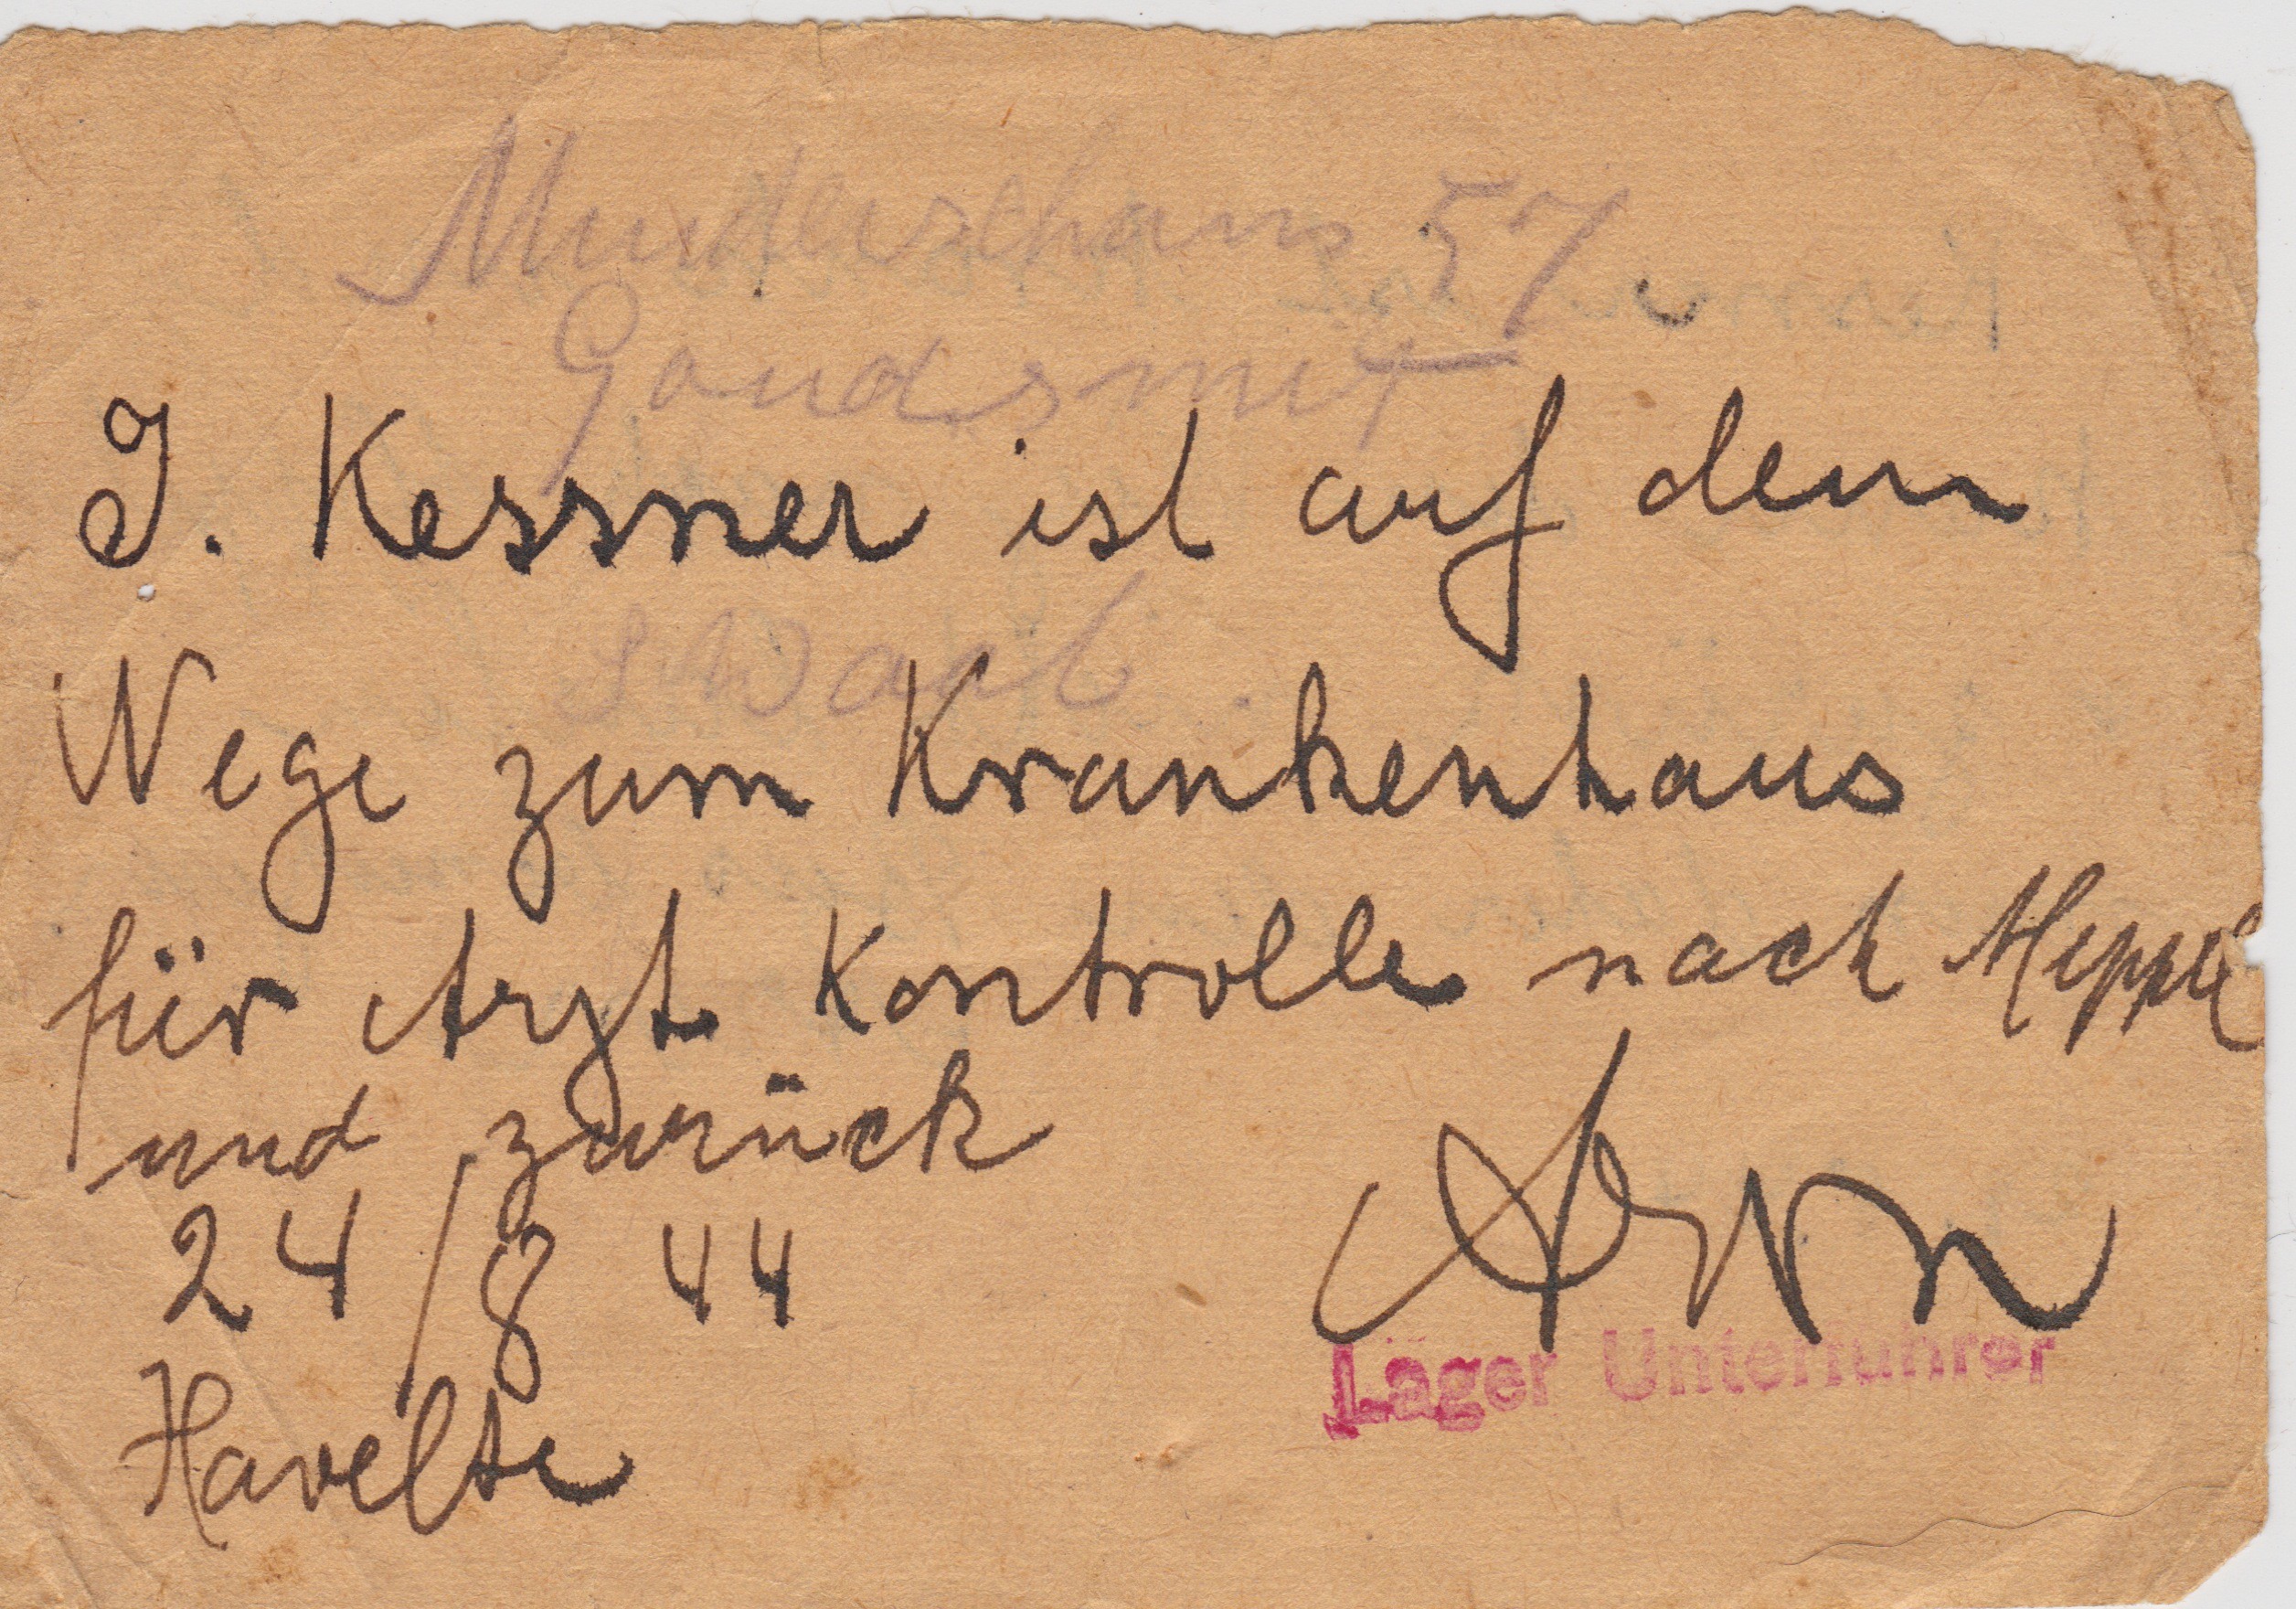 57
Goudsmit
J. Kessner ist auf dem
Swart
Wege zum Krankenhaus
für Arzt Kontrolle nach Meppel
und zurück
24/8 44
Lager Unterführer
Havelte